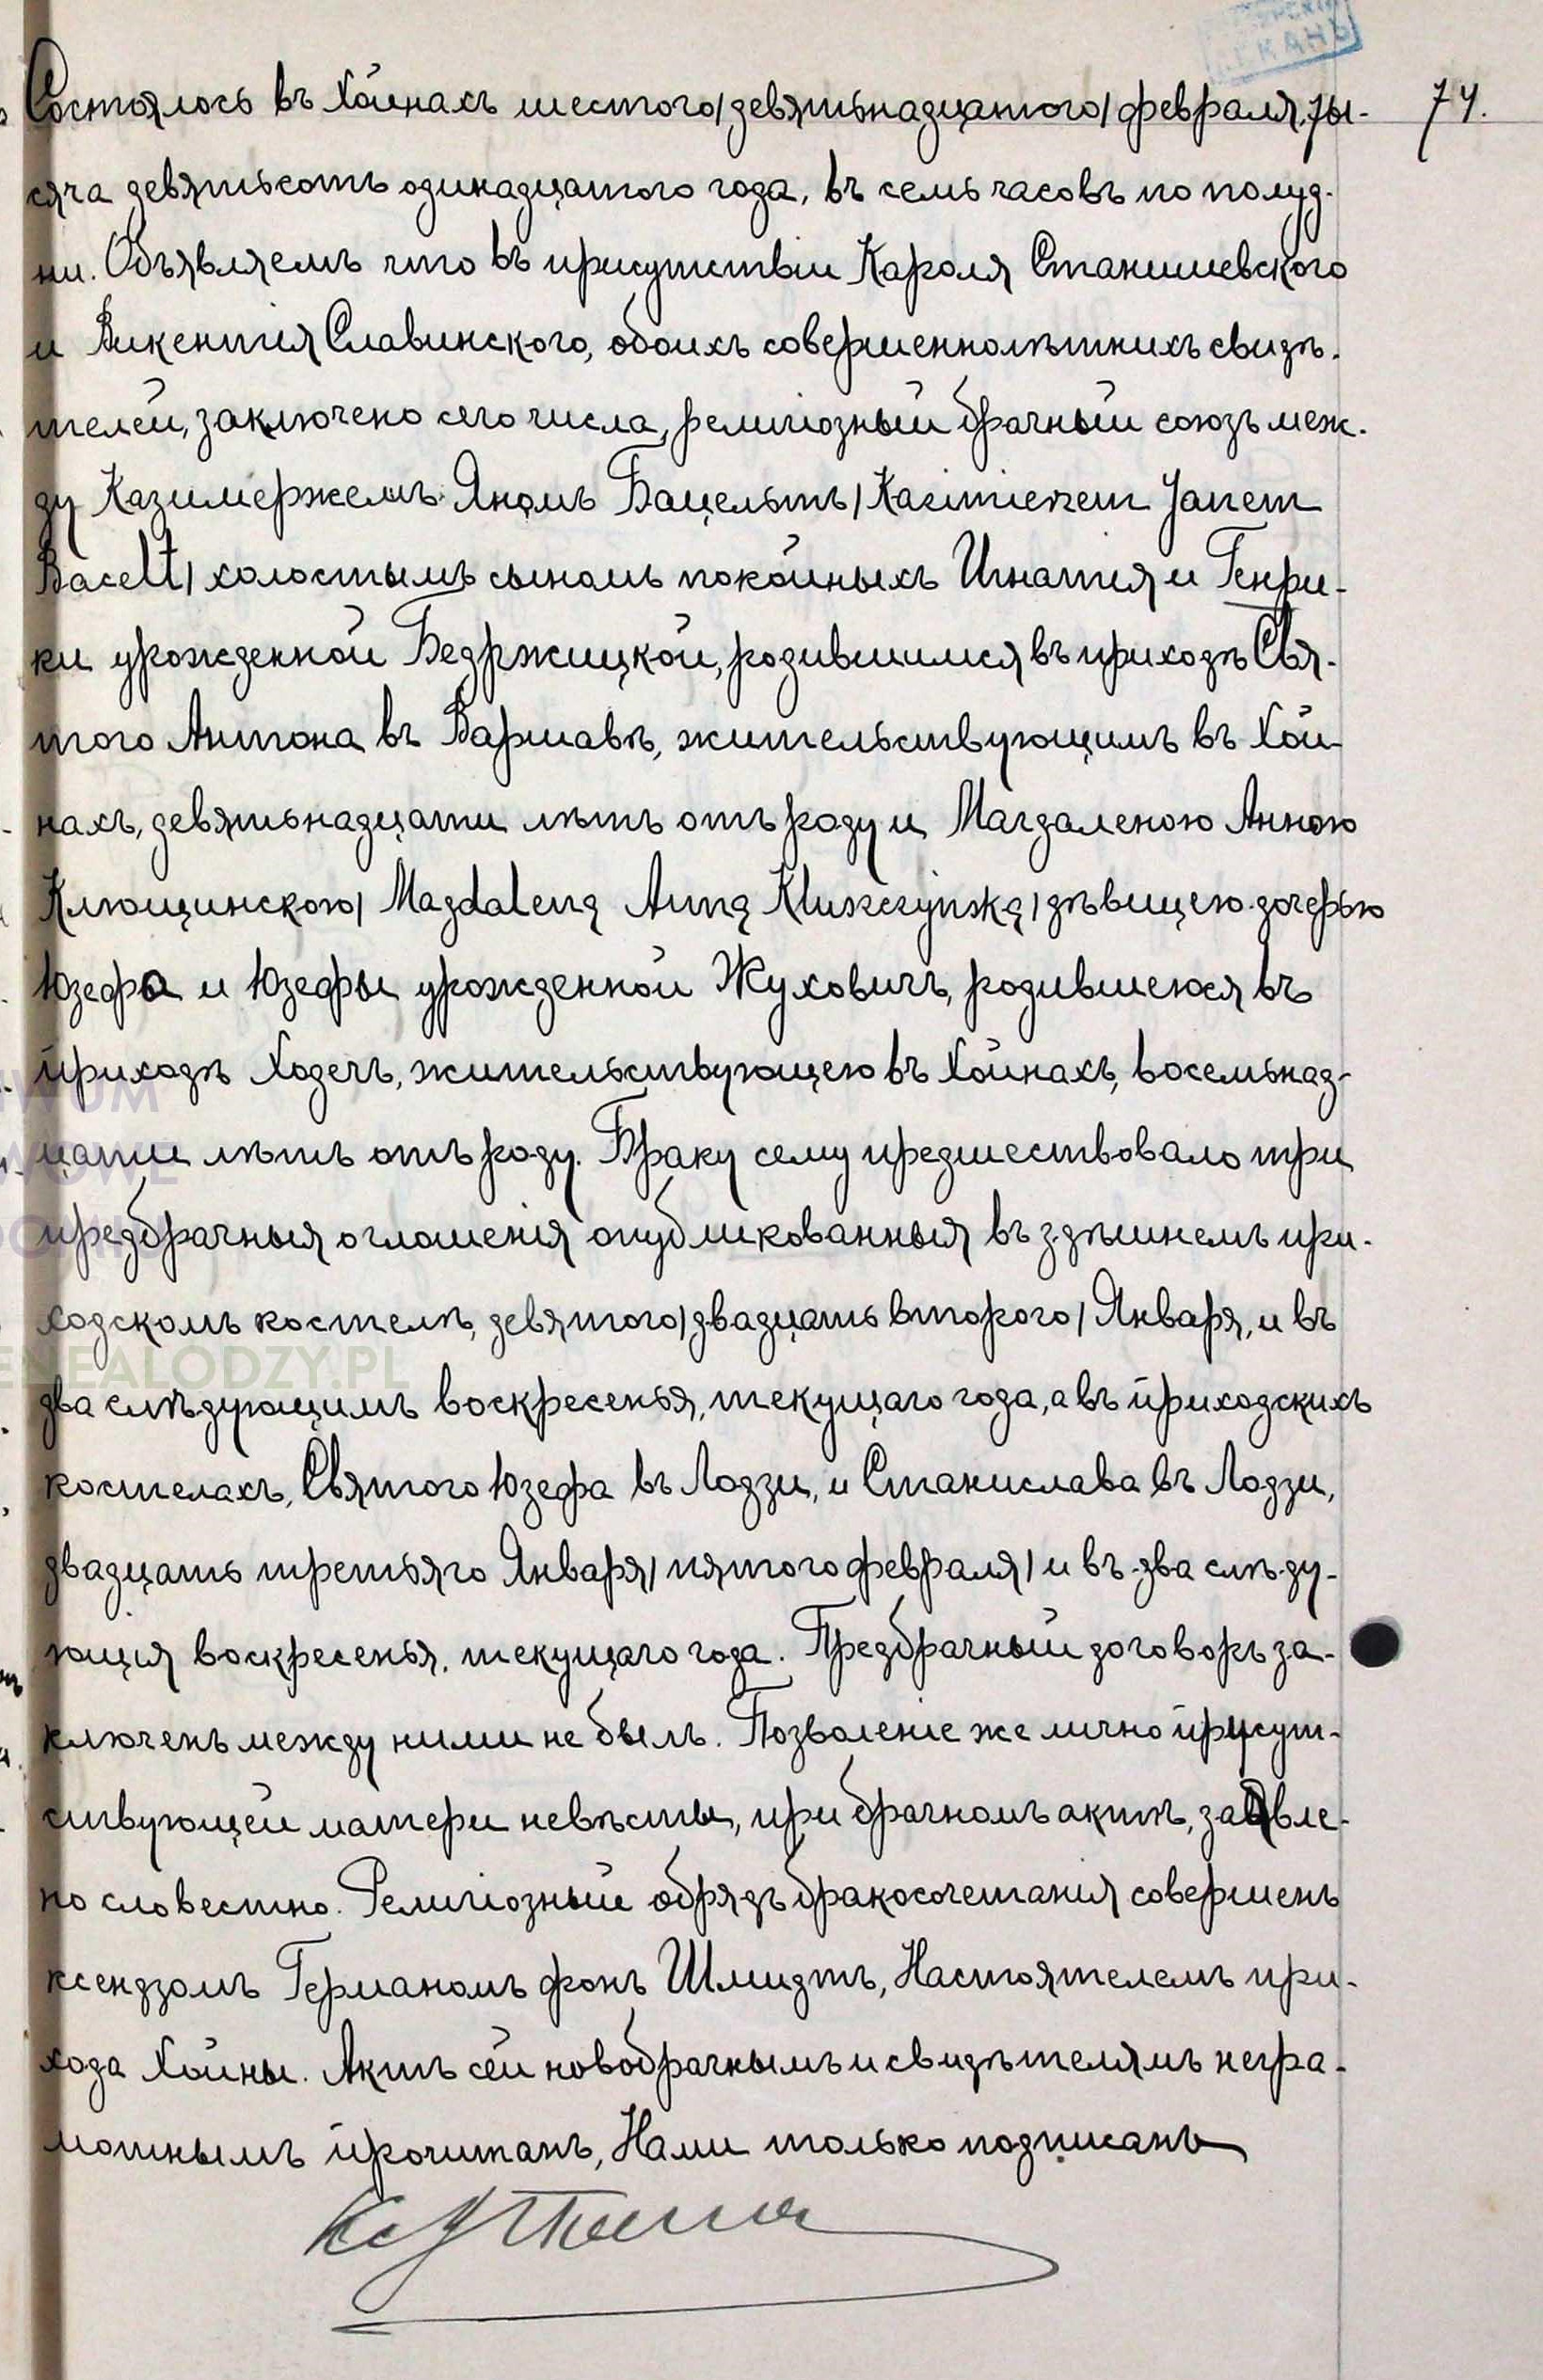 74.
Состоялось въ Хойнахъ шестого /девятьнадцатого/ февраля, ты-
сяча девятьсотъ одинадцатого года, въ семь часовъ по полуд-
ни. Объявляемъ что въ присутствіи Кароля Станишевского
и Викентія Славинского, обоихъ совершеннолѣтнихъ свидѣ-
телей, заключено сего числа, религіозный брачный союзъ меж-
ду Казимержемъ Яномъ Бацельтъ /Kazimierzem Janem
Bacelt/ холостымъ сыномъ покойныхъ Игнатія и Генри-
ки урожденной Бедржицкой, родившимся въ приходѣ Свя-
того Антона въ Варшавѣ, жительствующимъ въ Хой-
нахъ, девятьнадцати лѣтъ отъ роду и Магдаленою Анною
Клющинскою /Magdaleną Anną Kluszczyńską/ дѣвицею дочерью
Юзефа и Юзефы урожденной Жуховичъ, родившеюся въ
приходѣ Ходечъ, жительствующею въ Хойнахъ, восемьнад-
цати лѣтъ отъ роду. Браку сему предшествовало три
предбрачныя оглошенія опубликованныя въ здѣшнемъ при-
ходскомъ костелѣ, девятого /двадцать второго/ Января, и въ
два слѣдующимъ воскресенья, текущаго года, а въ приходскихъ
костелахъ, Святого Юзефа въ Лодзи, и Станислава въ Лодзи,
двадцать третьяго Января /пятого февраля/ и въ два слѣду-
ющія воскресенья, текущаго года. Предбрачный договоръ за-
ключенъ между ними не былъ. Позволеніе же лично присут-
ствующей матери невѣсты, при брачномъ актѣ, заявле-
но словестно. Религіозный обрядъ бракосочетанія совершенъ
ксендзомъ Германомъ фонъ Шмидтъ, Настоятелемъ при-
хода Хойны. Актъ сей новобрачнымъ и свидѣтелямъ негра-
мотнымъ прочитанъ, Нами только подписанъ
GENEALODZY.PL